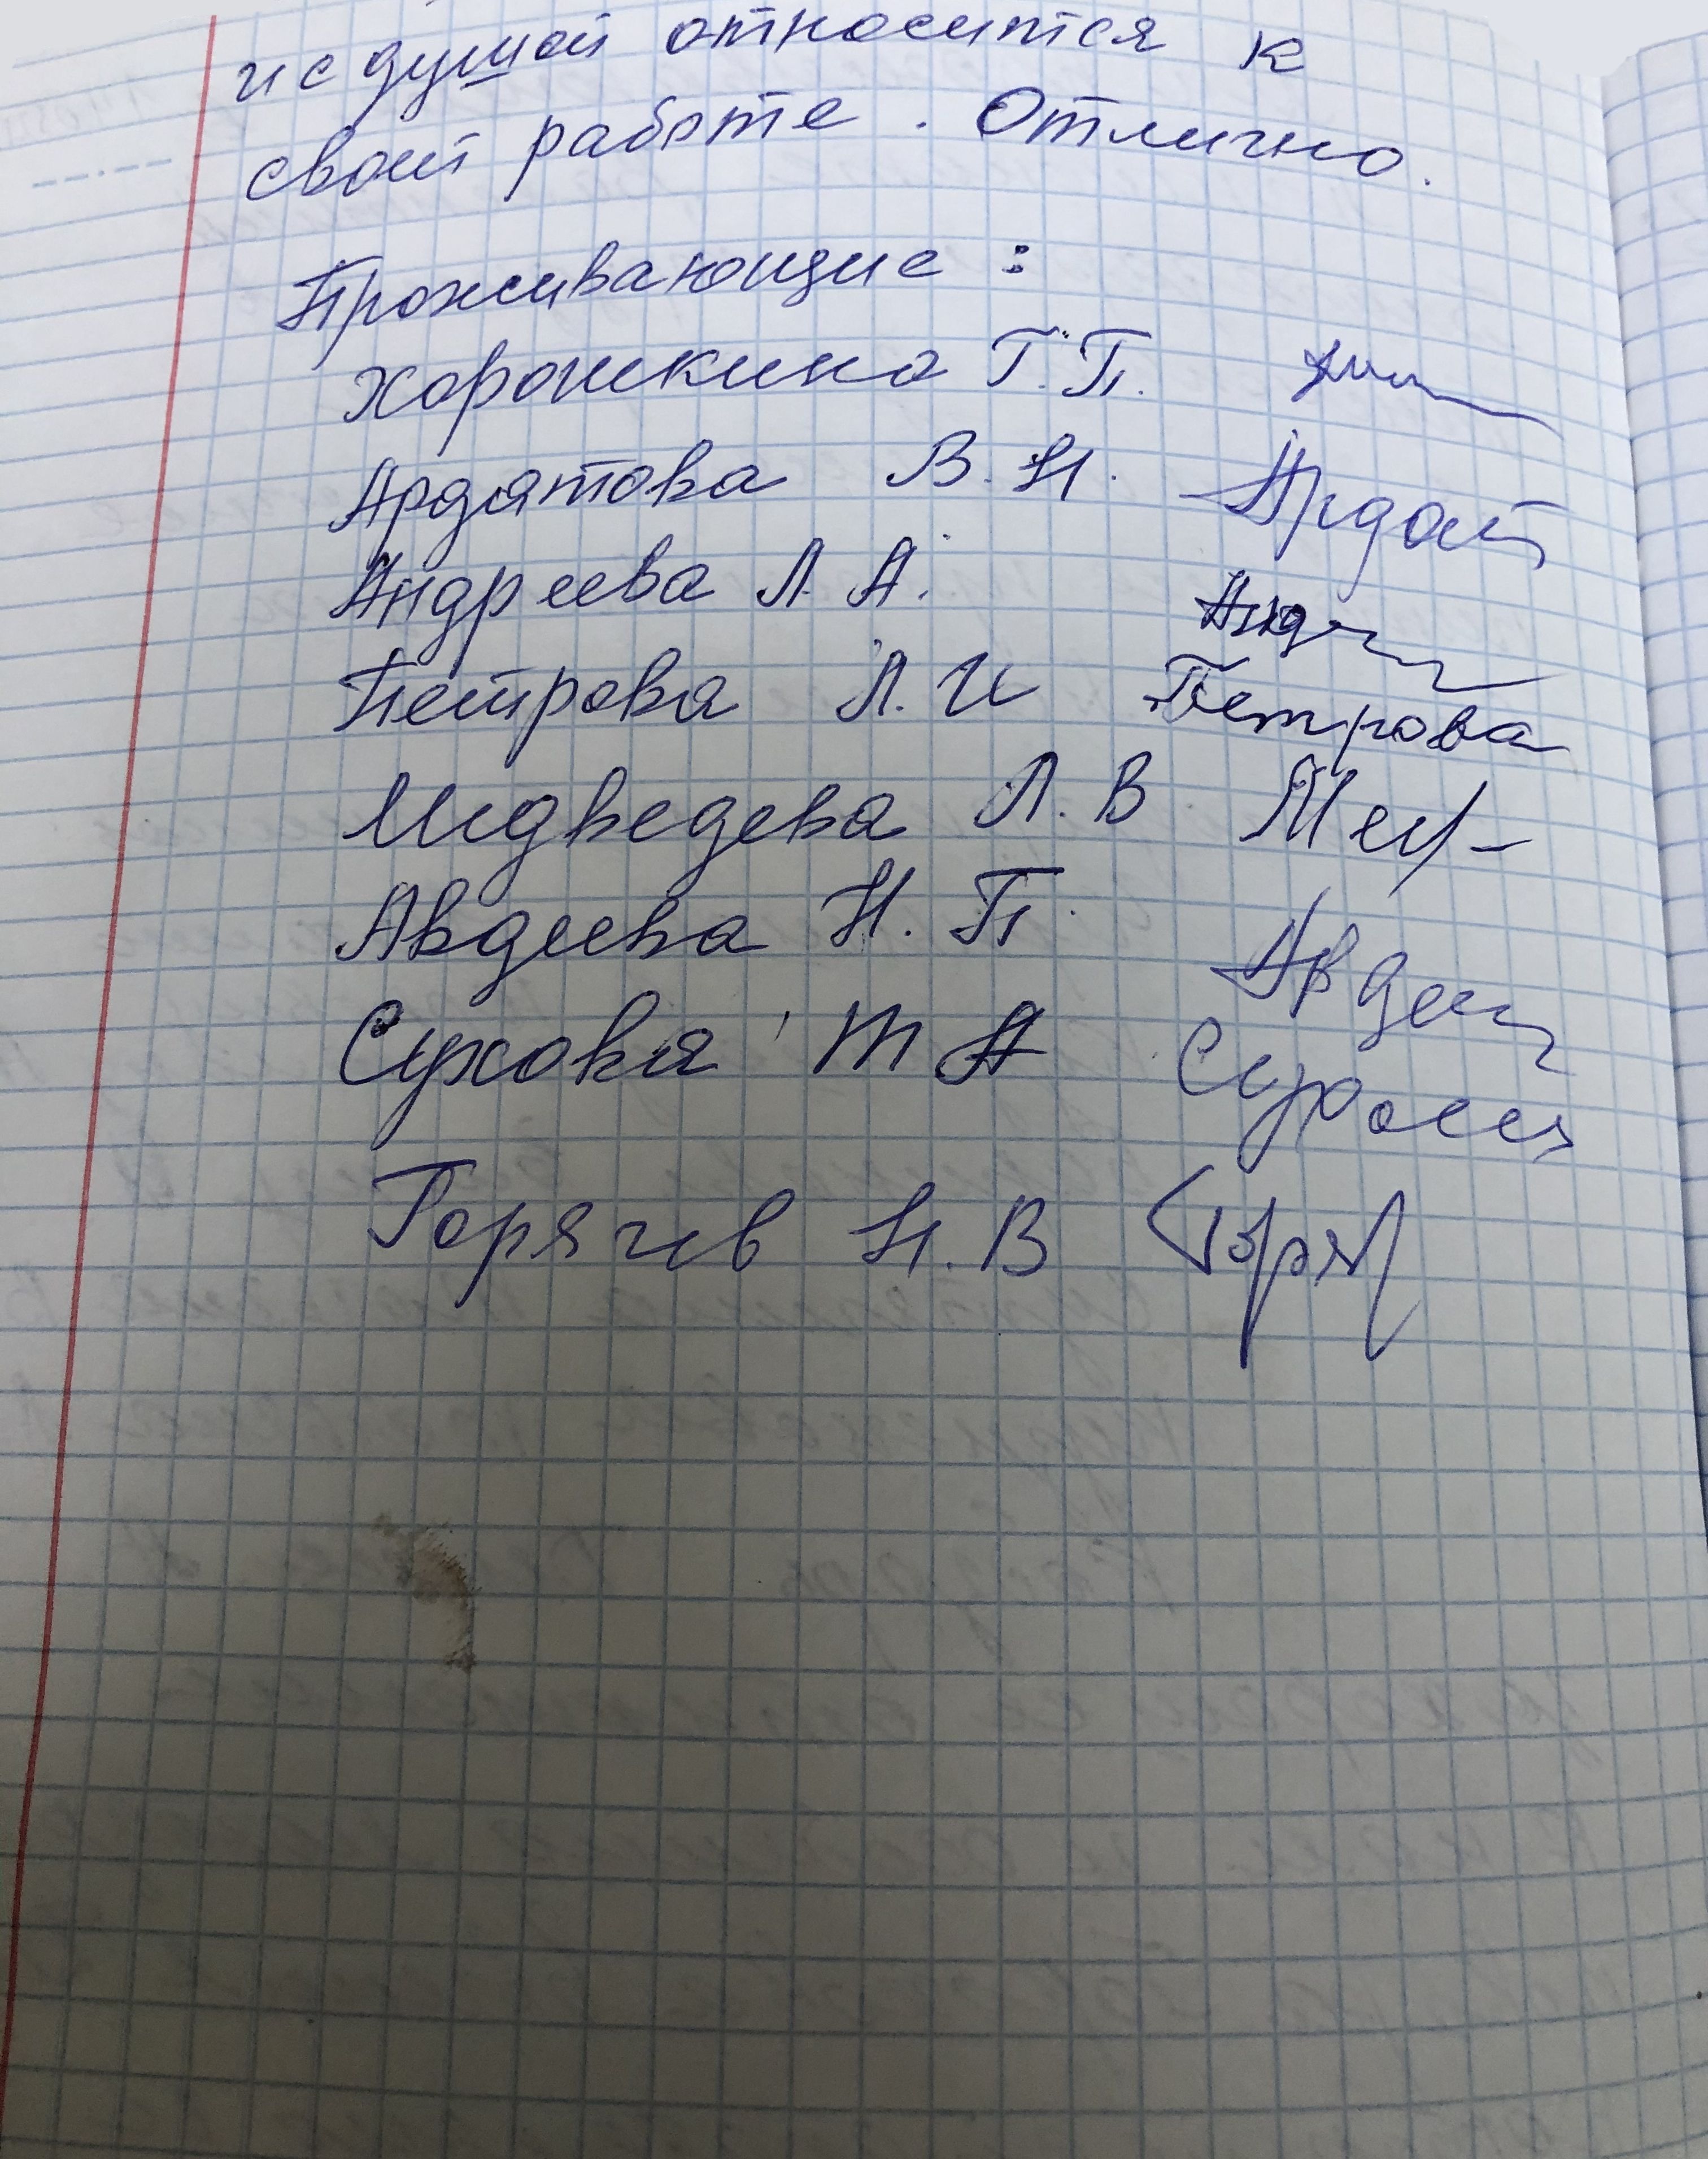 и с душой относится к
своей работе. Отлично.
Проживающие:
Хорошкина Г.П.
Ардатова В.Н. Ардат
Андреева Л.А. Андр
Петрова Л.И Петрова
Медведева Л.В Мед
Авдеева Н.П. Авдеев
Сухова Т А Сухова
Горячев Н.В Горя